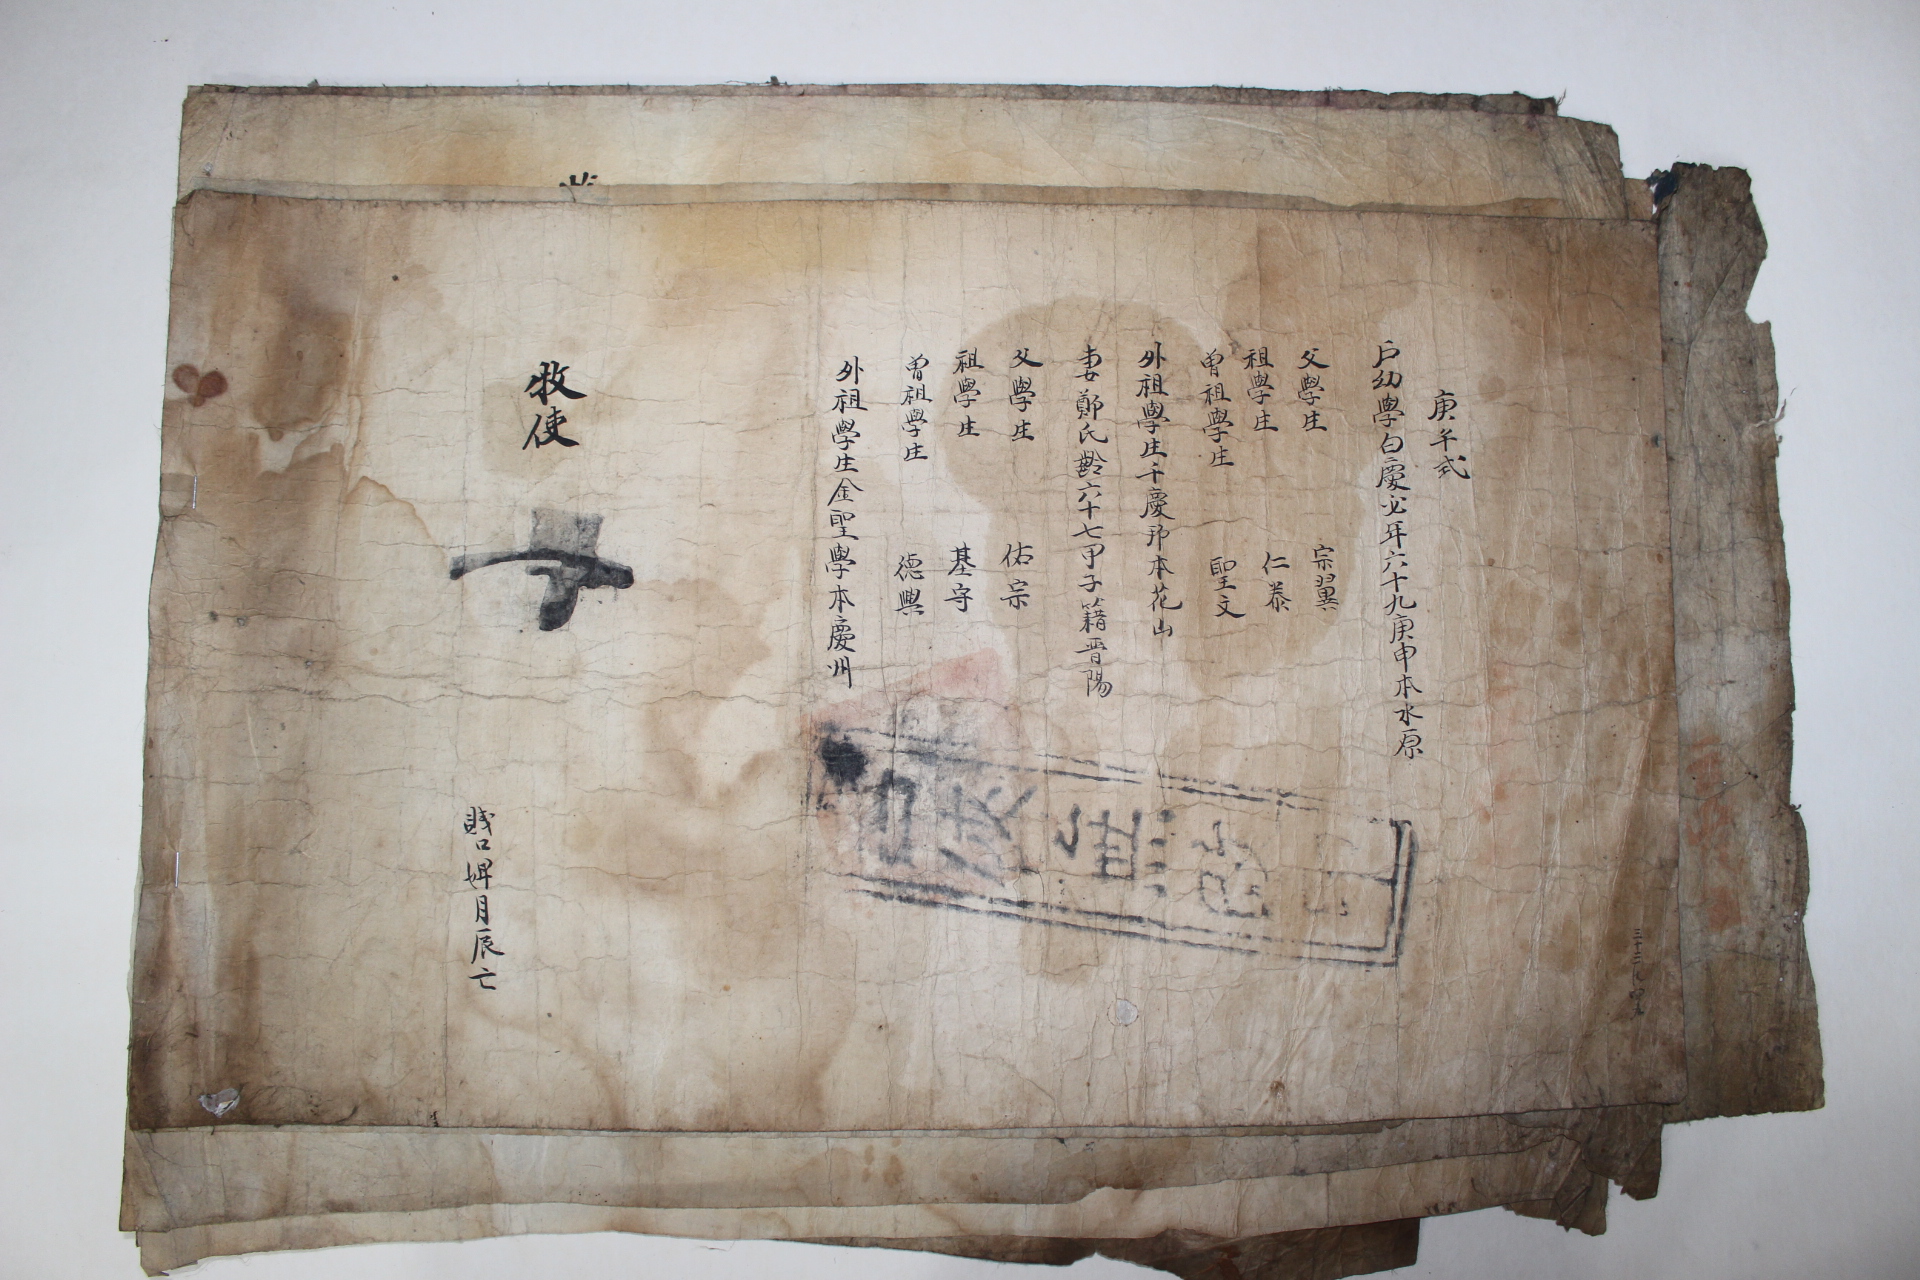 庚午式
戶幼學白慶必年六十九庚申本水原
父學生 宗翼
祖學生 仁泰
曾祖學生 聖文
外祖學生千慶 本花山
妻鄭氏齡六十七甲子籍晋陽
父學生 佑宗
祖學生 基守
曾祖學生 德興
外祖學生金聖學本慶州
牧使
賤口婢月辰亡